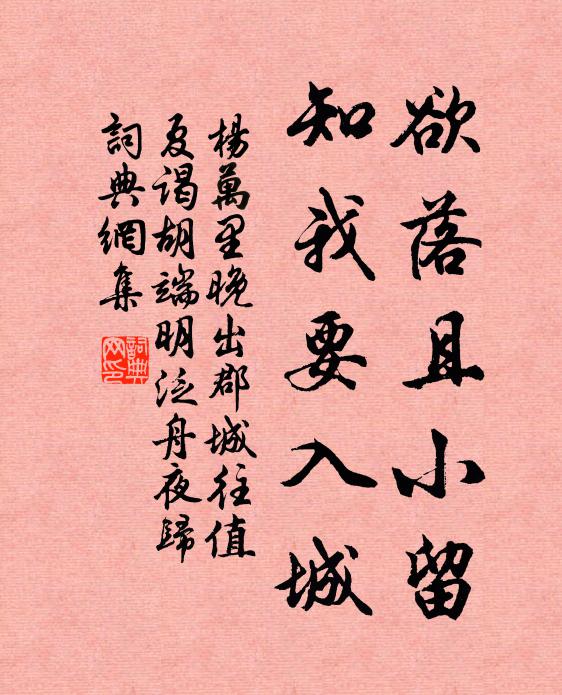 欲落且小留
知我要入城
楊萬里晚出郡城往值
夏謁胡端明泛舟夜歸
詞典網集
詞典
网印